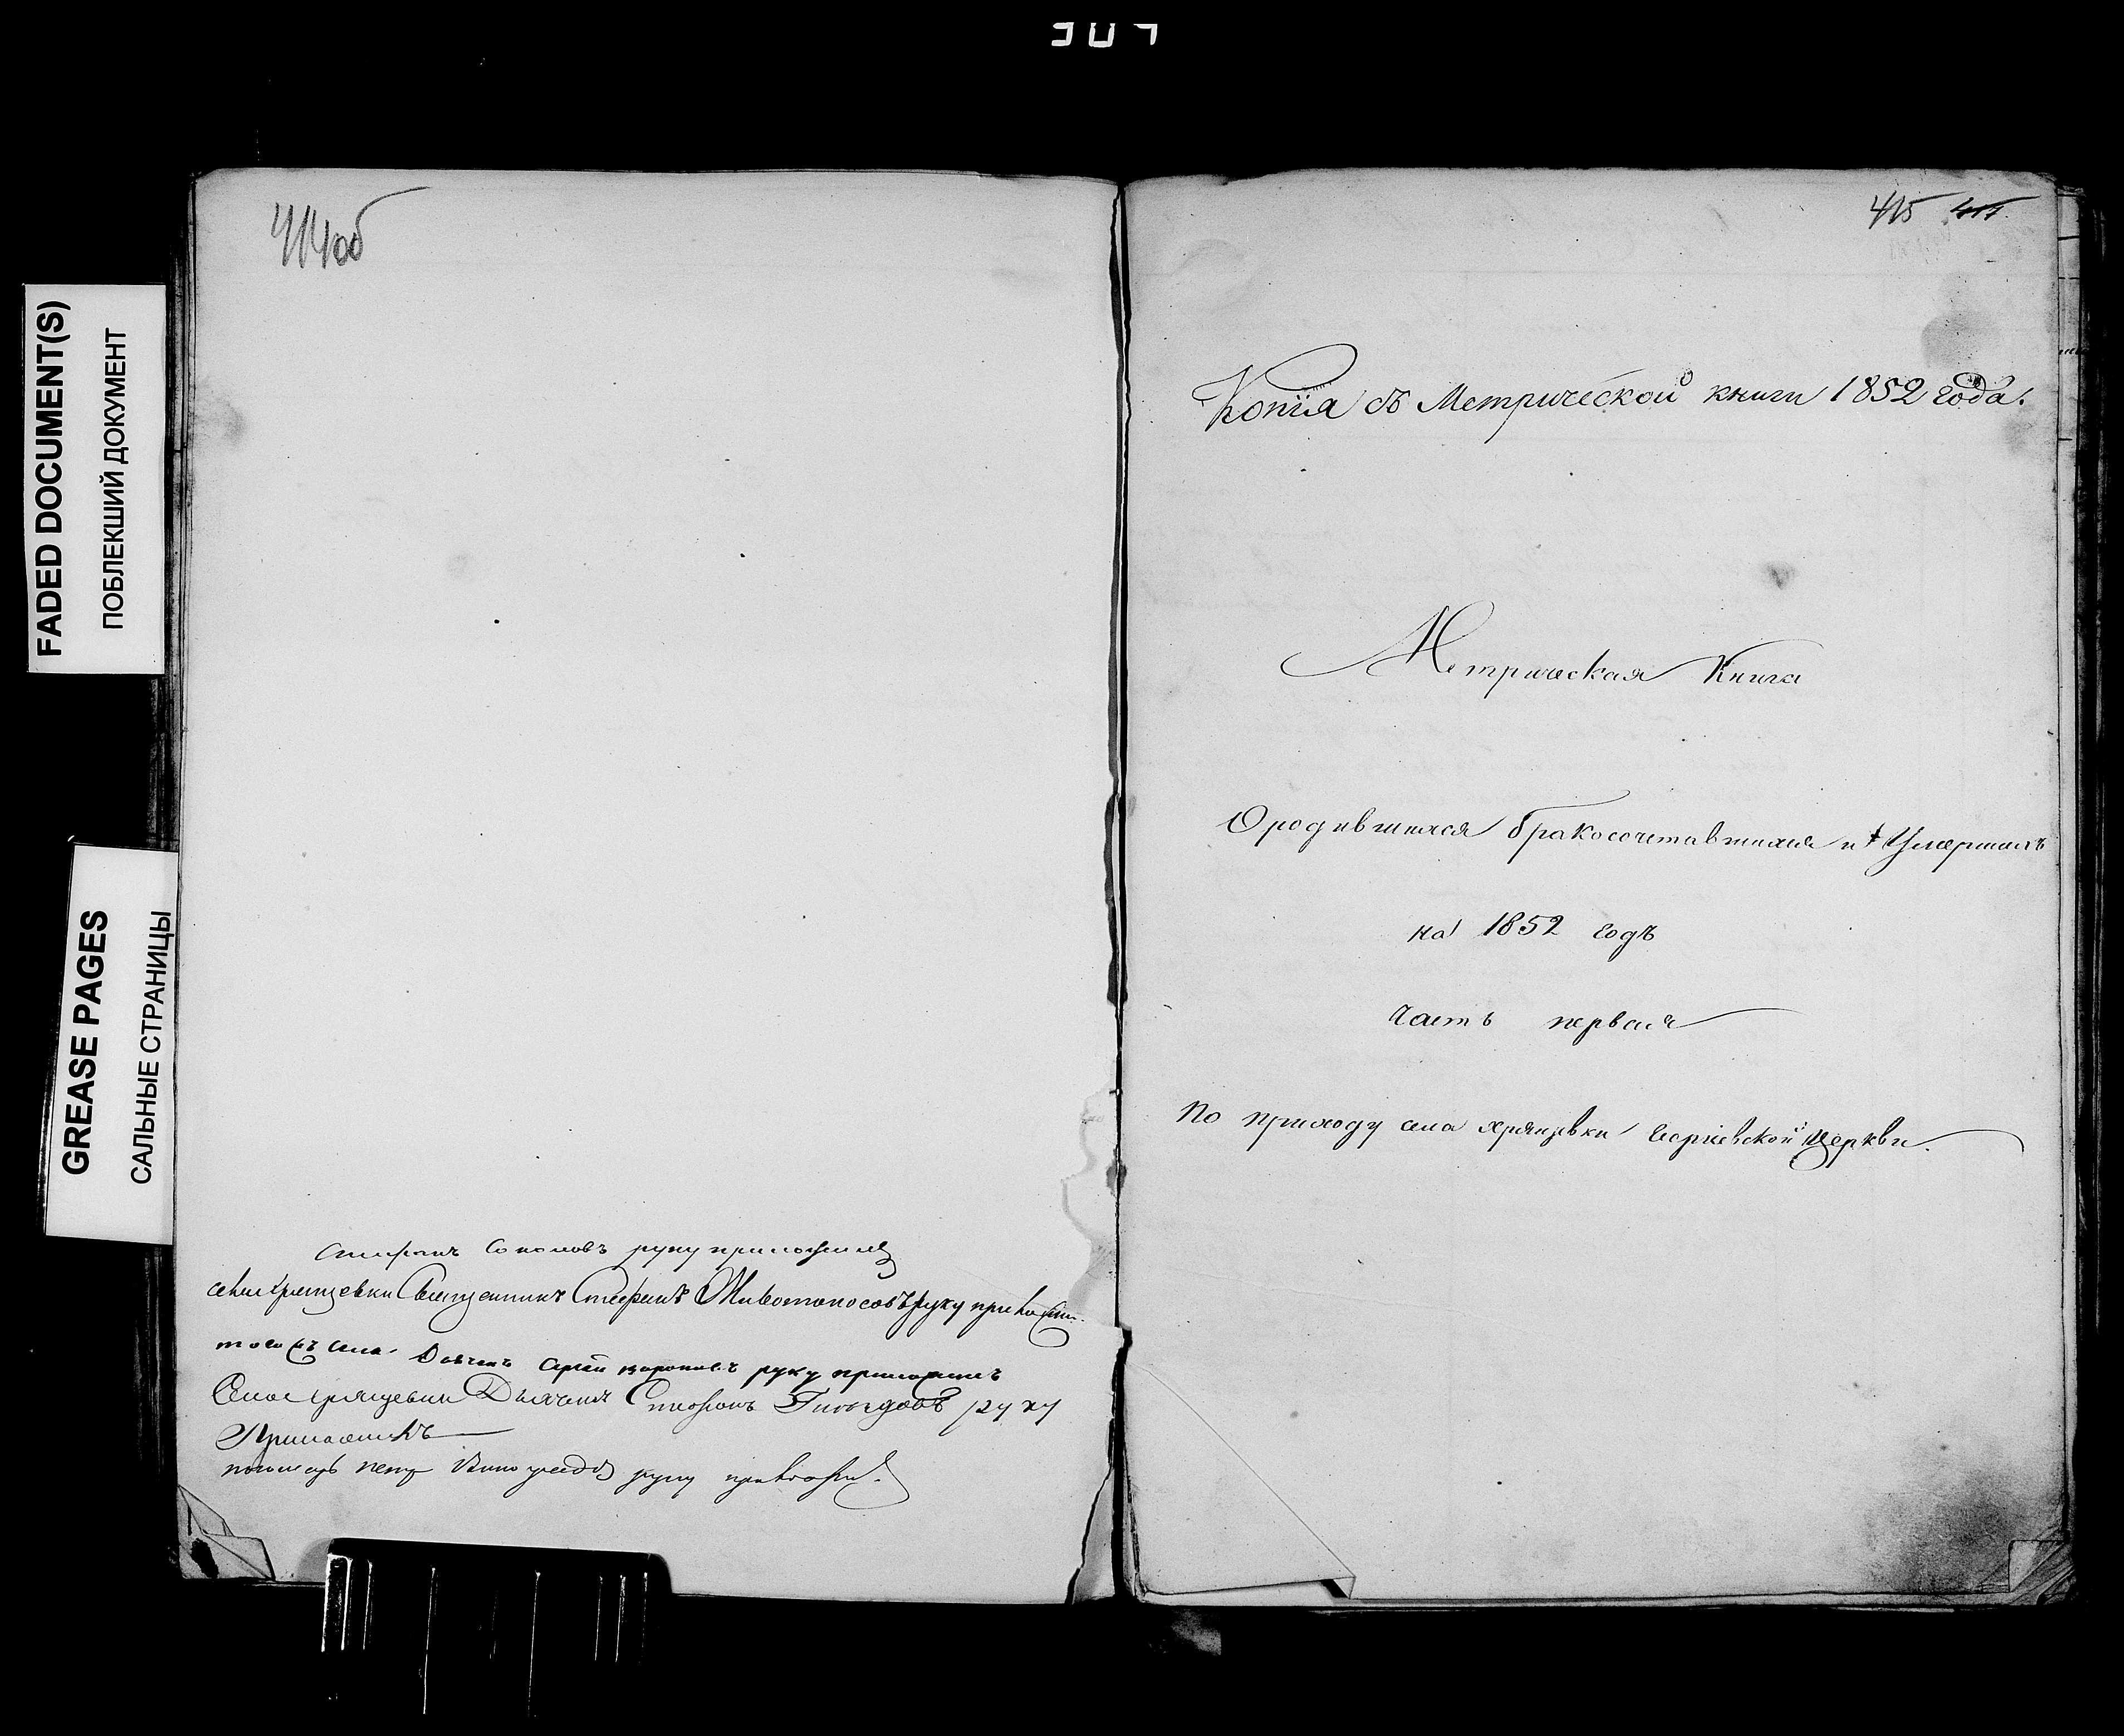 307
FADED DOCUMENT(S)
ПОБЛЕКШИЙ ДОКУМЕНТ
GREASE PAGES
САЛЬНЫЕ СТРАНИЦЫ
414 об
руку приложилъ
села Хрящевки Священникъ Стефанъ Животоносовъ руку приложи
тогожъ села Дьячекъ руку приложилъ
Села Хрящевки Дьячекъ руку
Приложилъ
руку приложи
415
Копія съ Метрической книги 1852 года.
Метрическая Книга
О родившихся бракосочетавшихся и Умершихъ
на 1852 годъ
часть первая
По приходу села Хрящевки Георгіевской Церкви.